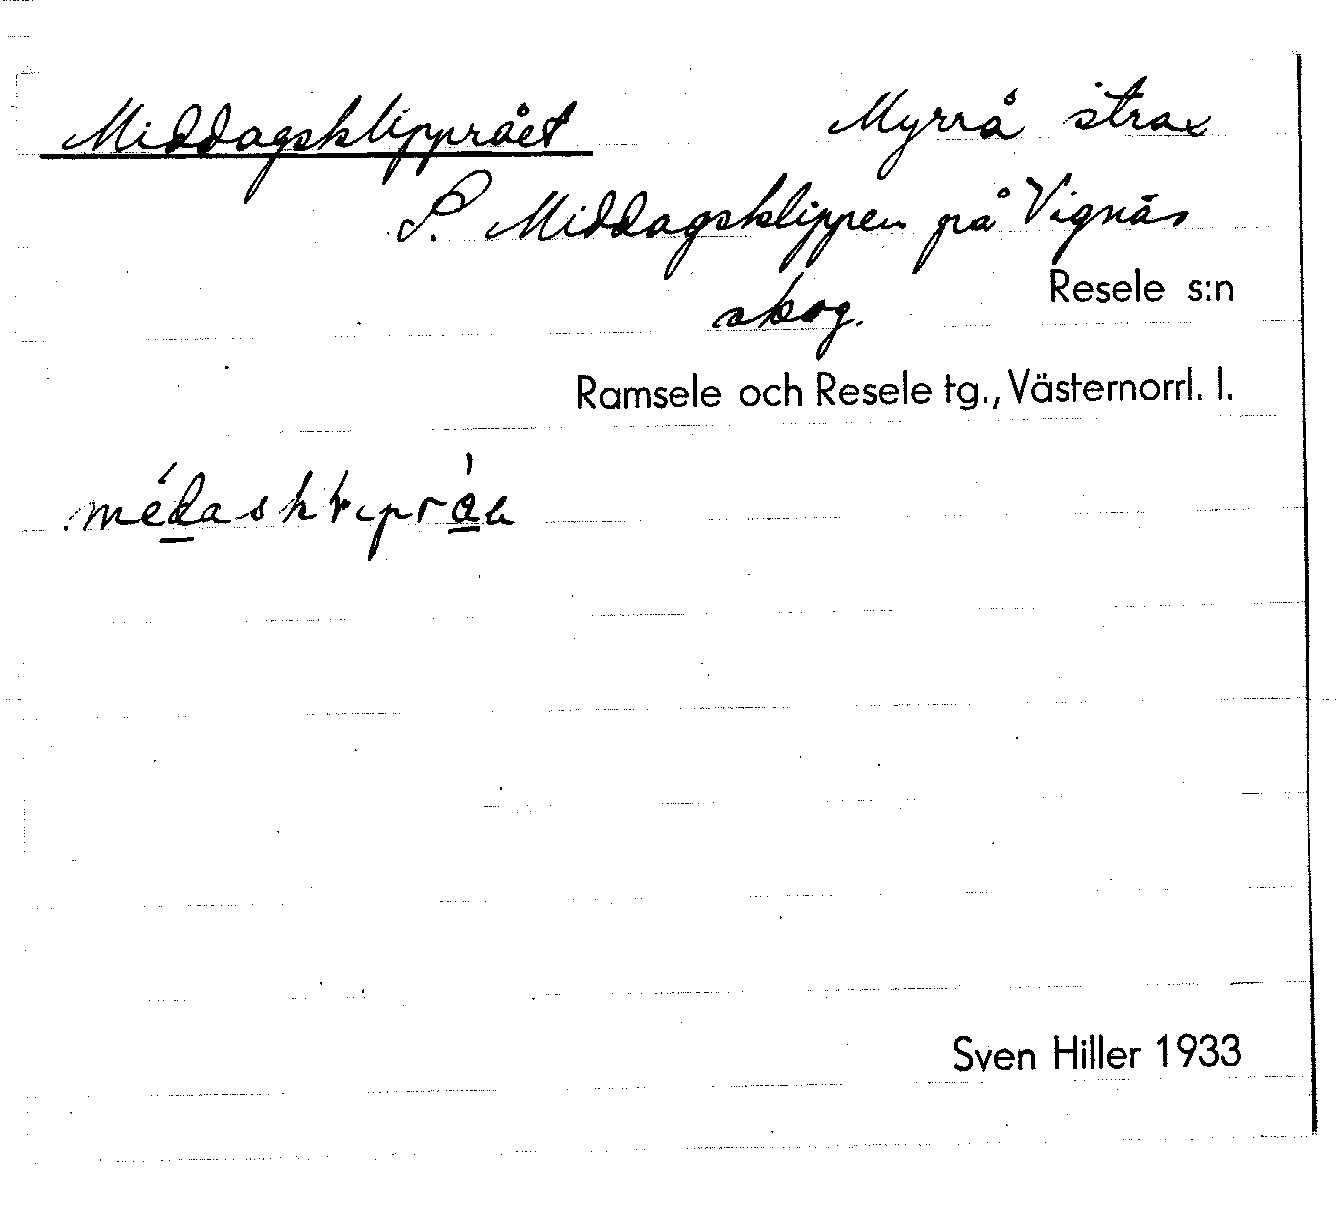 Middagsklipprået Myrrå strax
S. Middagsklippen på Vignäs
skog. Resele s:n
Ramsele och Resele tg., Västernorrl. l.
Sven Hiller 1933